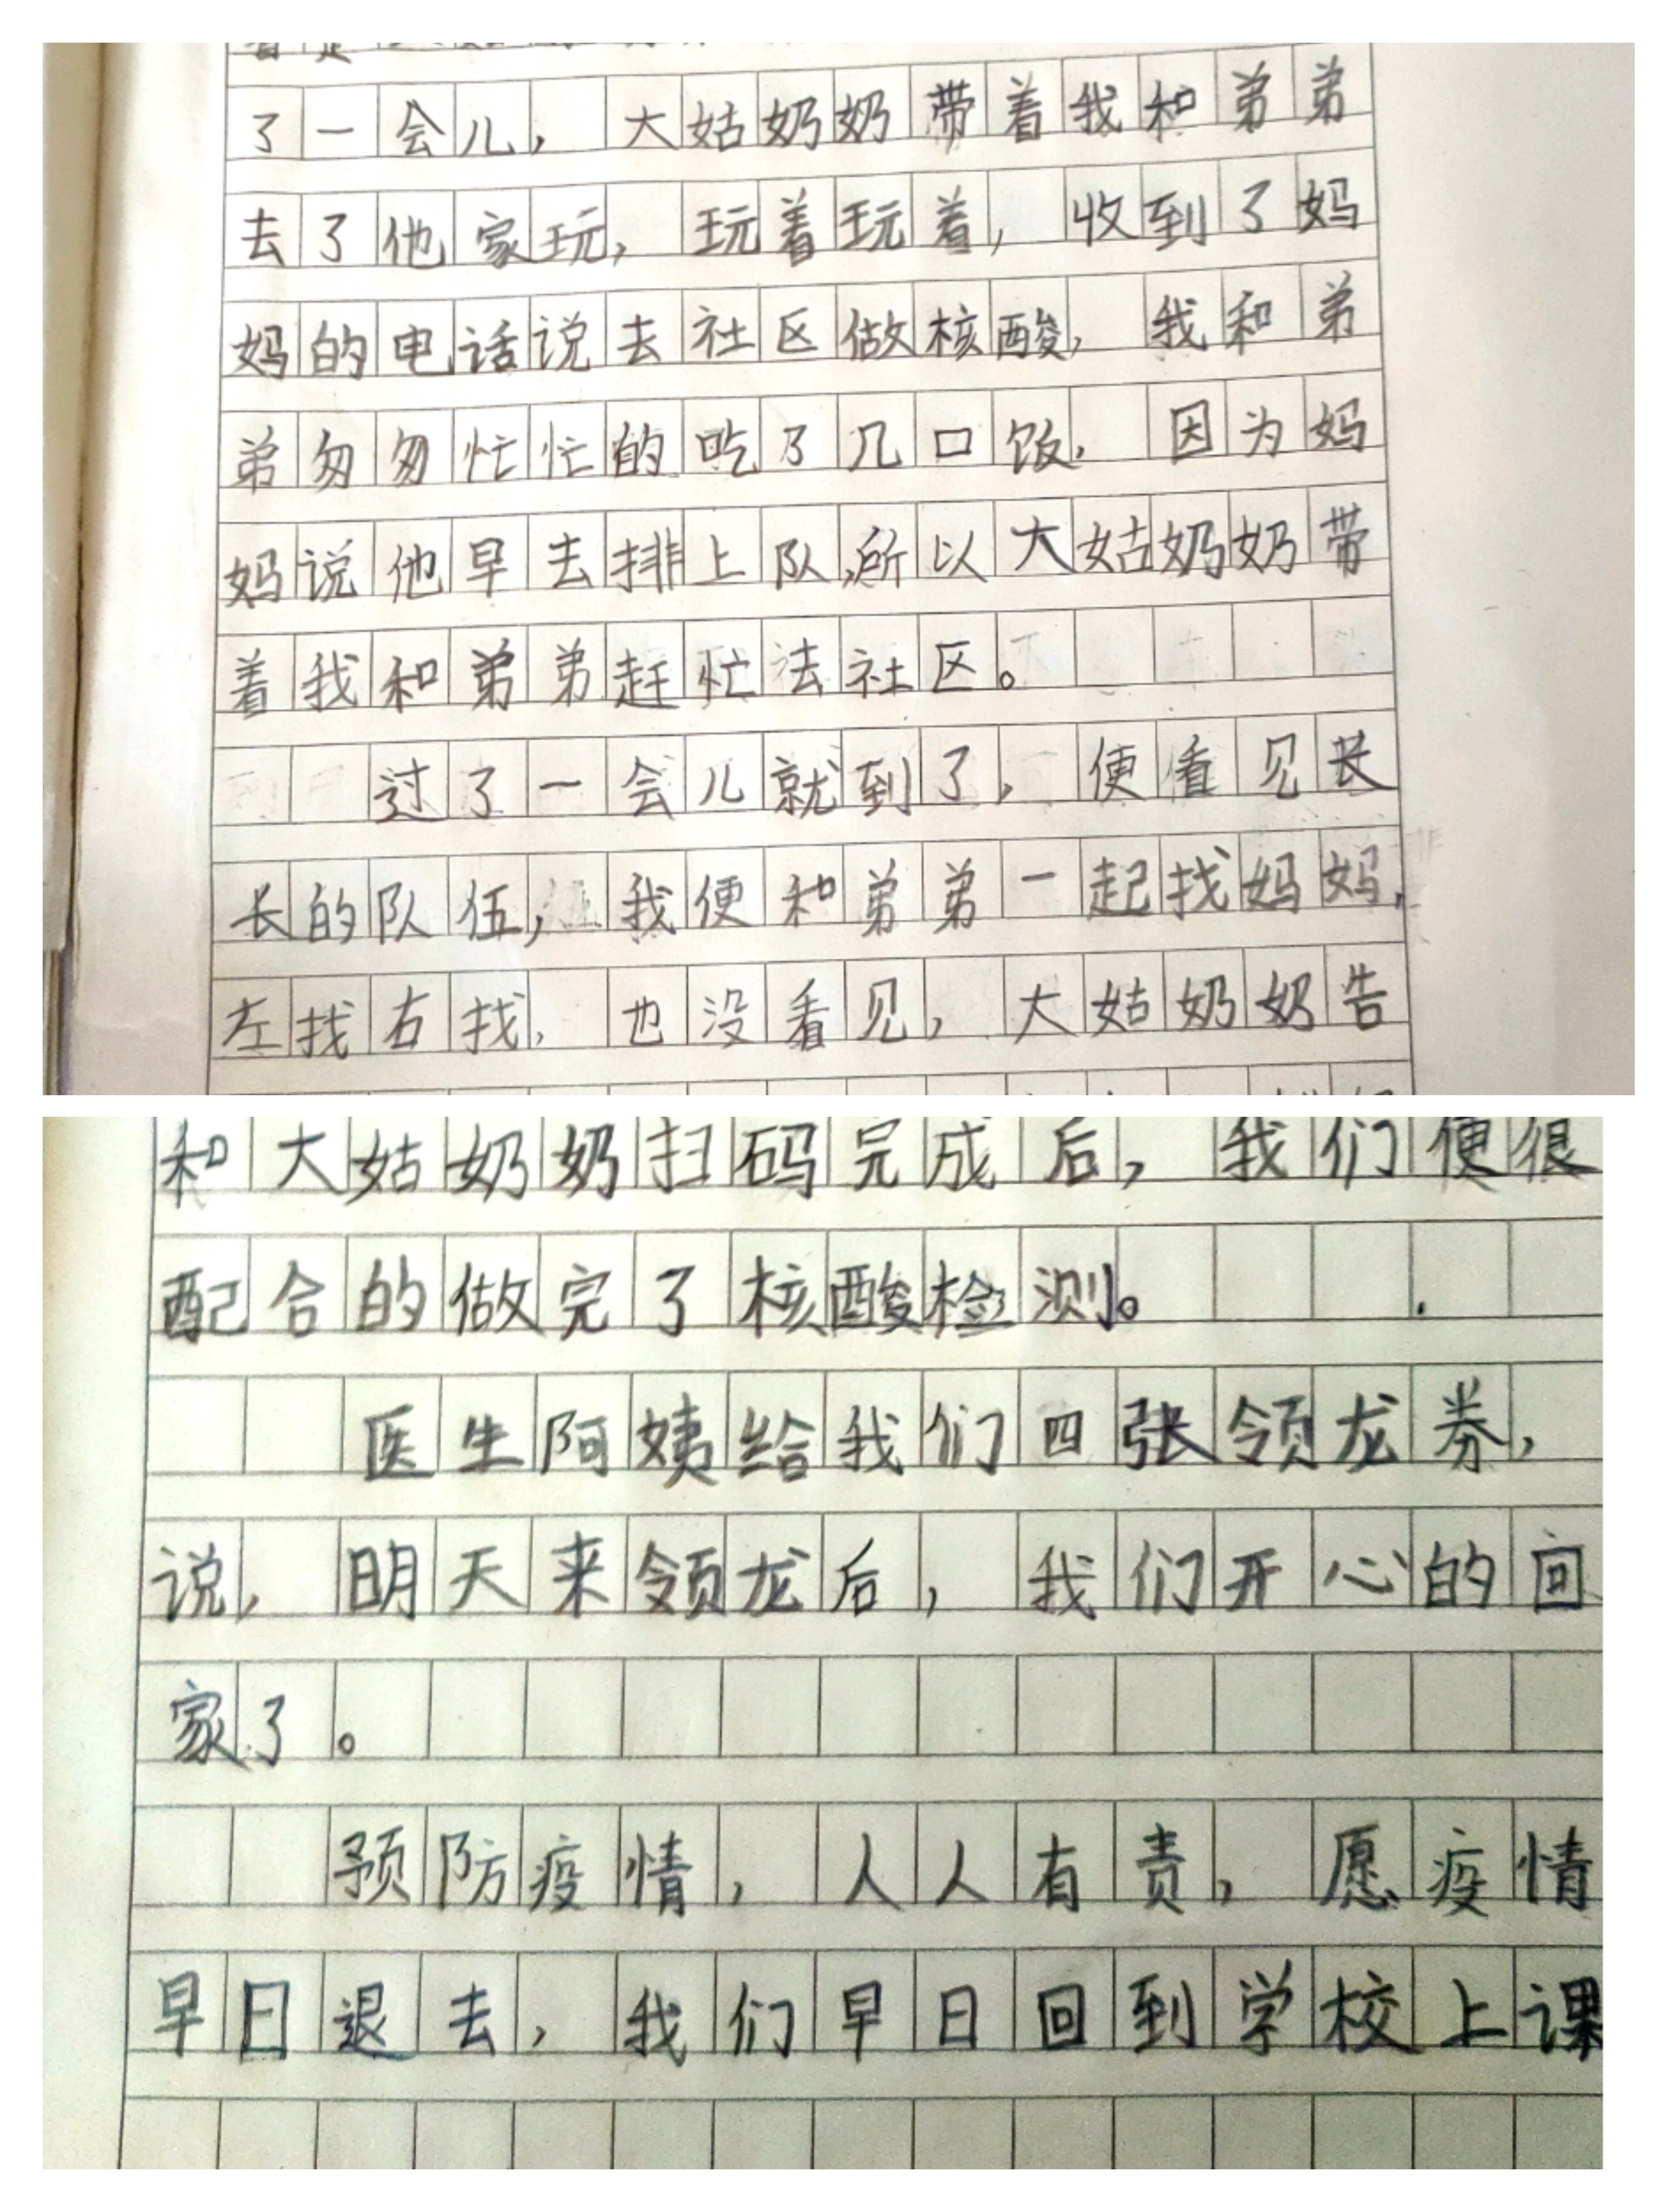 了一会儿，大姑奶奶带着我和弟弟
去了他家玩，玩着玩着，收到了妈
妈的电话说去社区做核酸，我和弟
弟匆匆忙忙的吃了几口饭，因为妈
妈说他早去排上队，所以大姑奶奶带
着我和弟弟赶忙法社区。
过了一会儿就到了，便看见长
长的队伍，我便和弟弟一起找妈妈，
左找右找，也没看见，大姑奶奶告
和大姑奶奶扫码完成后，我们便很
配合的做完了核酸检测。
医生阿姨给我们四张领龙券，
说，明天来领龙后，我们开心的回
家了。
预防疫情，人人有责，愿疫情
早日退去，我们早日回到学校上课